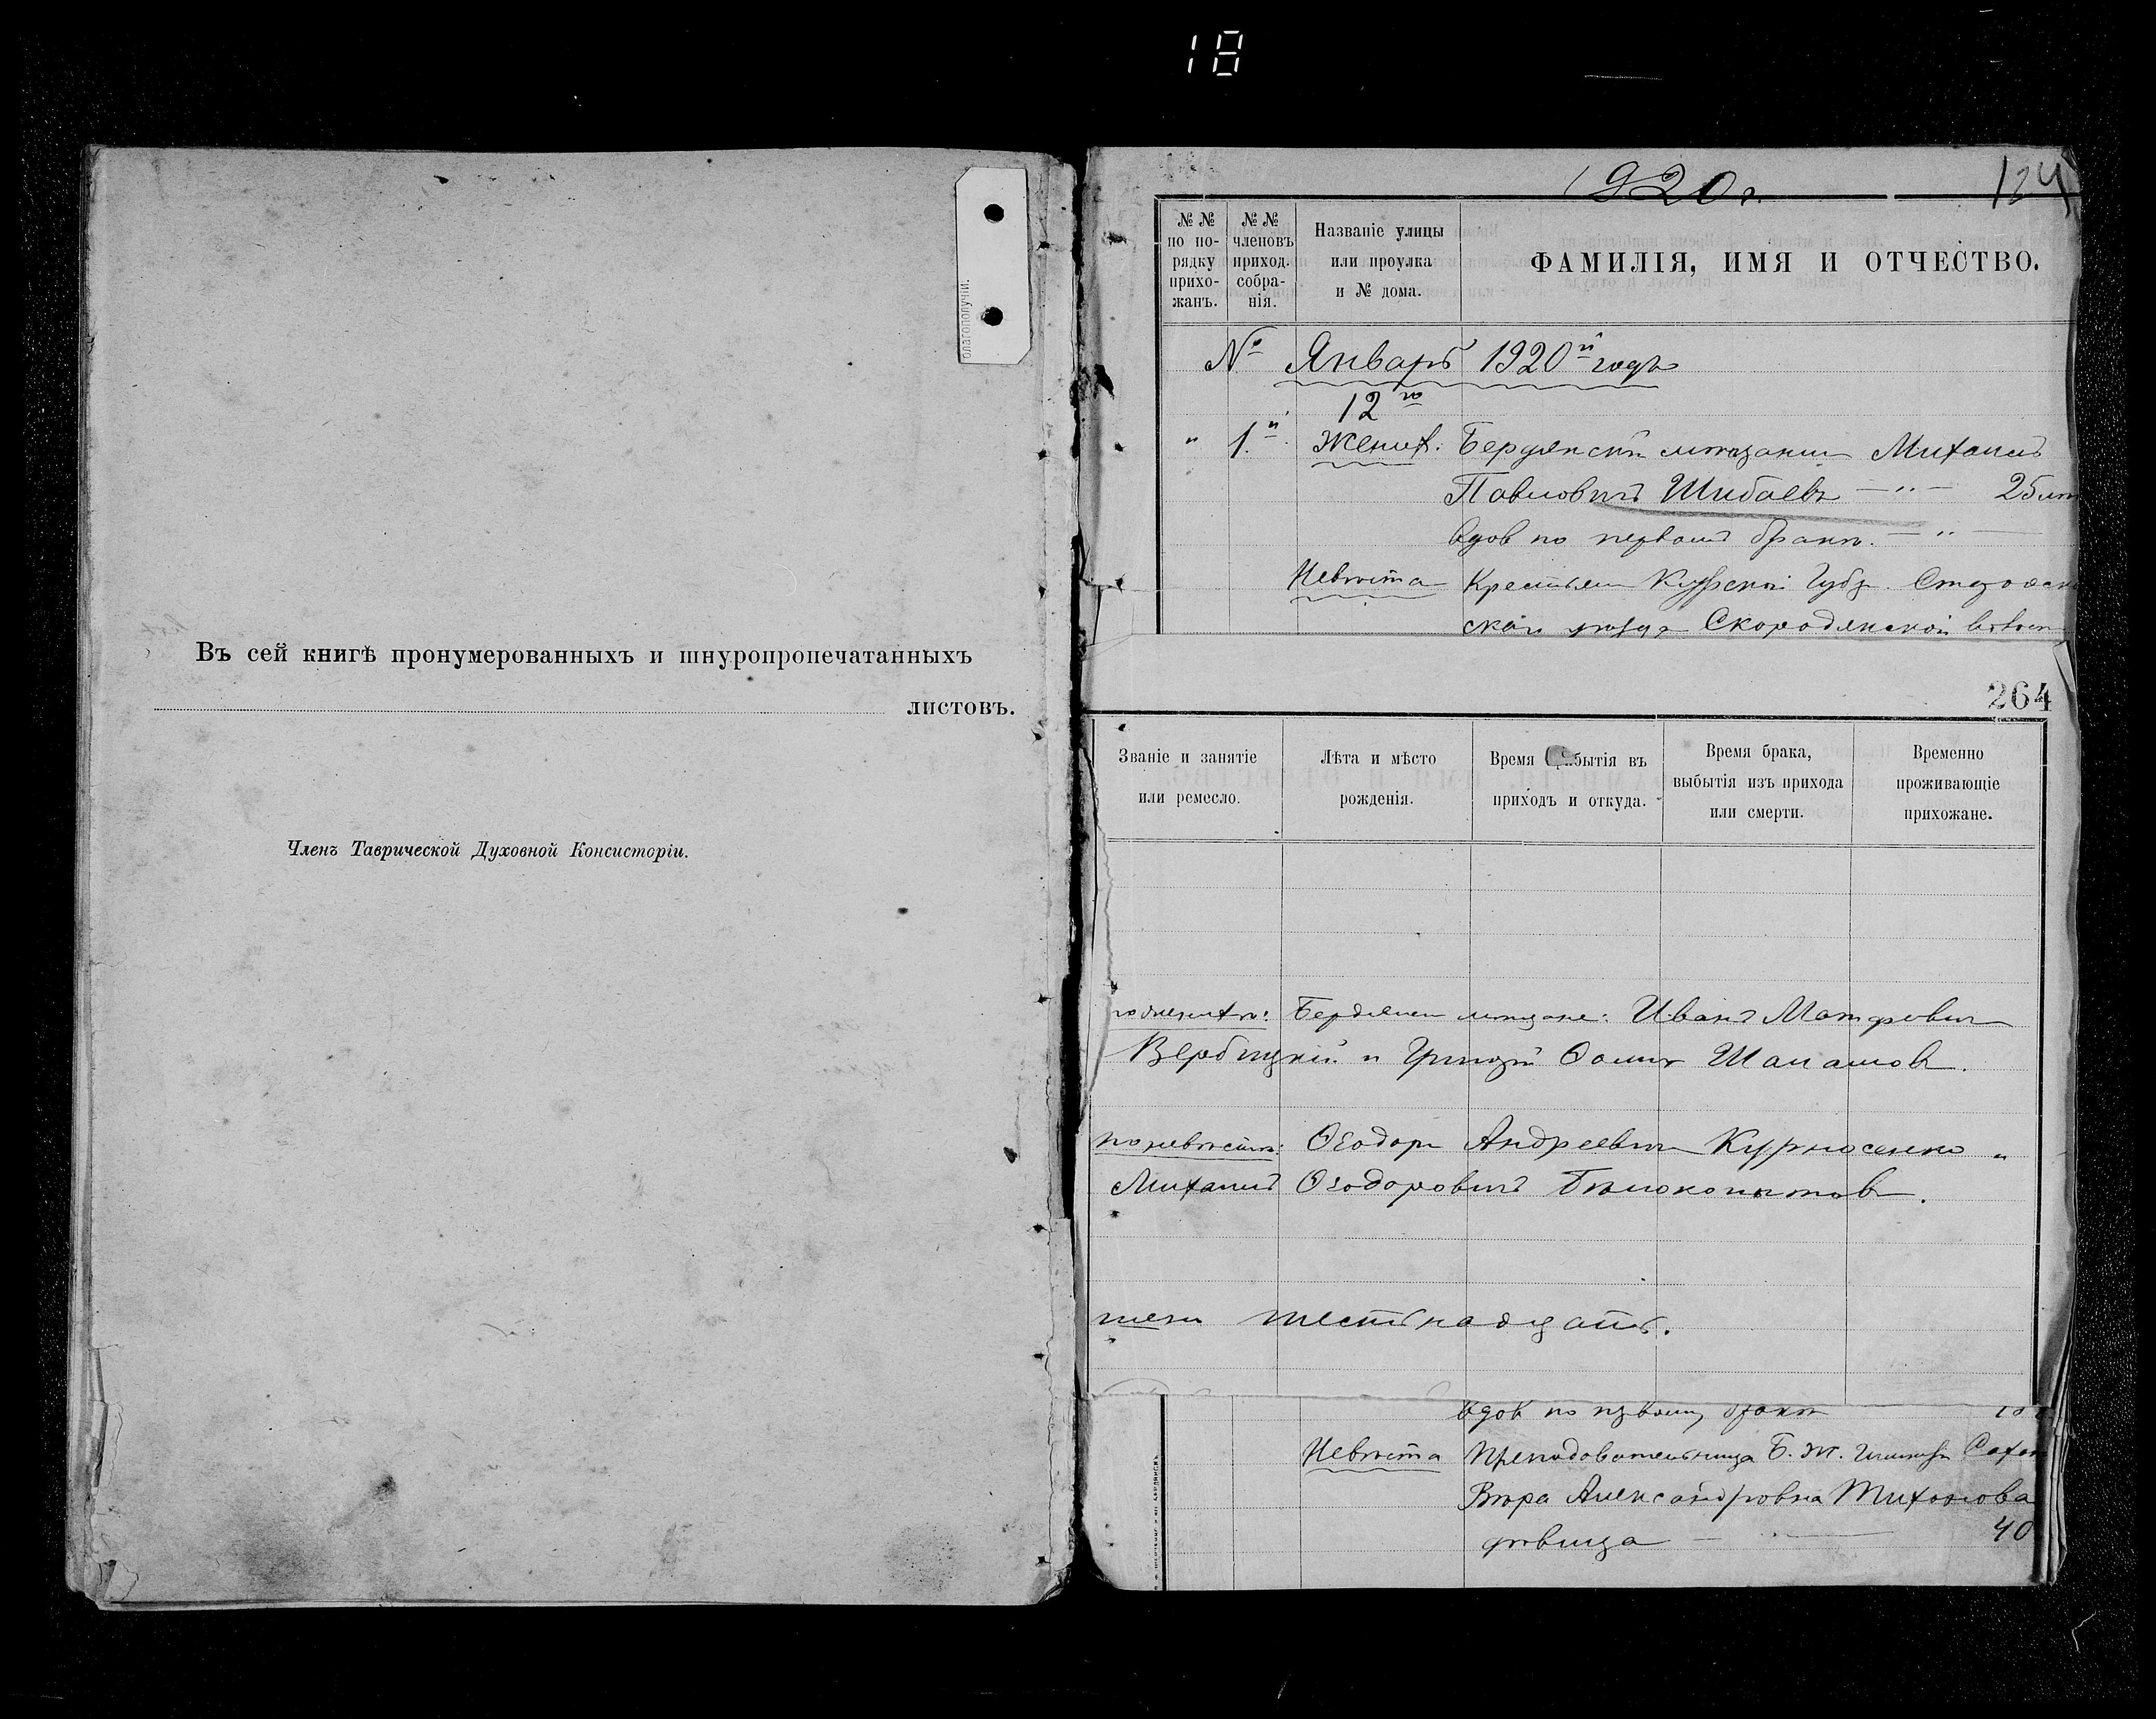 18
благополучіи.
Въ сей книгѣ пронумерованныхъ и шнуропропечатанныхъ
листовъ.
Членъ Таврической Духовной Консисторіи.
1920 г. 124
№ № по порядку прихожанъ.
№ № членовъ приход. собранія.
Названіе улицы или проулка и № дома.
ФАМИЛІЯ, ИМЯ И ОТЧЕСТВО.
№ Январь 1920й годъ
12го
" 1.й Жених: Бердянскій мѣщанин Михаилъ
Павловичъ Шибаевъ — " — 25 лѣт
вдов по первомъ бракѣ. — " —
Невѣста Крестьян Курской Губер.
ской уѣзда Скороднянской волост
264
Званіе и занятіе или ремесло.
Лѣта и мѣсто рожденія.
Время прибытія въ приходъ и откуда.
Время брака, выбытія изъ прихода или смерти.
Временно проживающіе прихожане.
по женихѣ: Бердянск мѣщане: Иванъ Матфеевич
Вербицкій и Григорій Ѳомич
по невѣстѣ: Ѳеодор Андреевич Курносенко "
Михаилъ Ѳеодоровичъ Бѣлокопытов.
шестнадцать.
вдов по первому бракѣ
Невѣста Преподавательница Б. Ж. Гимназ
Вѣра Александровна Тихонова
дѣвица — 40